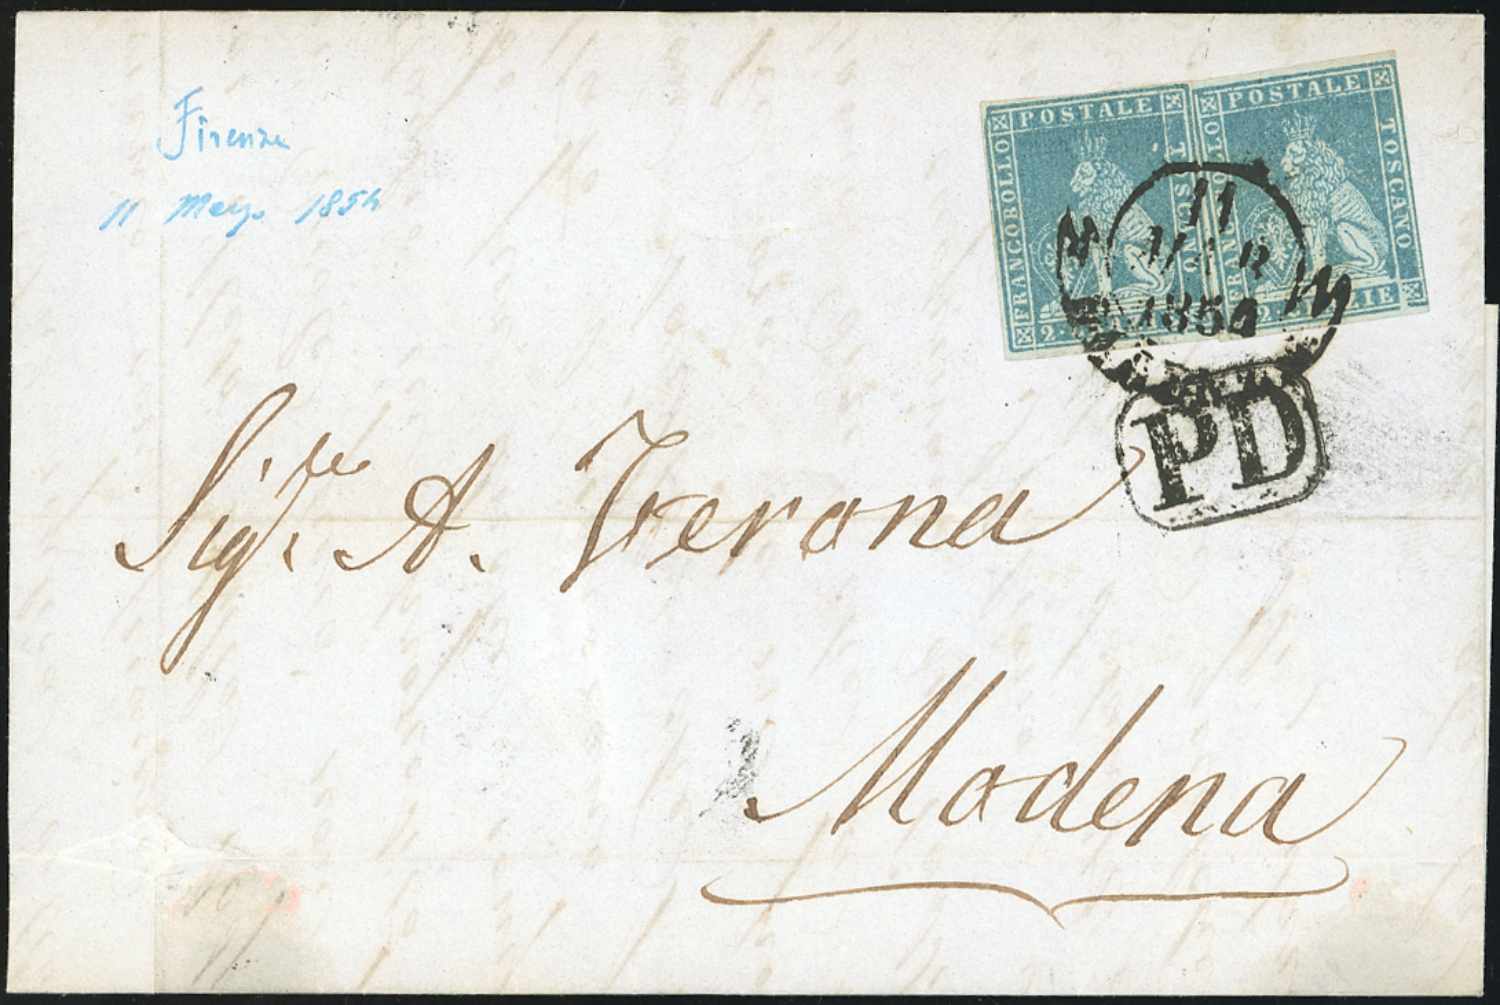 Firenze
11 Marzo 1854
FRANCOBOLLO POSTALE TOSCANO
2
FRANCOBOLLO POSTALE TOSCANO
2 CRAZIE
11
MAR
1854
PD
Sigre. A. Verona
Modena